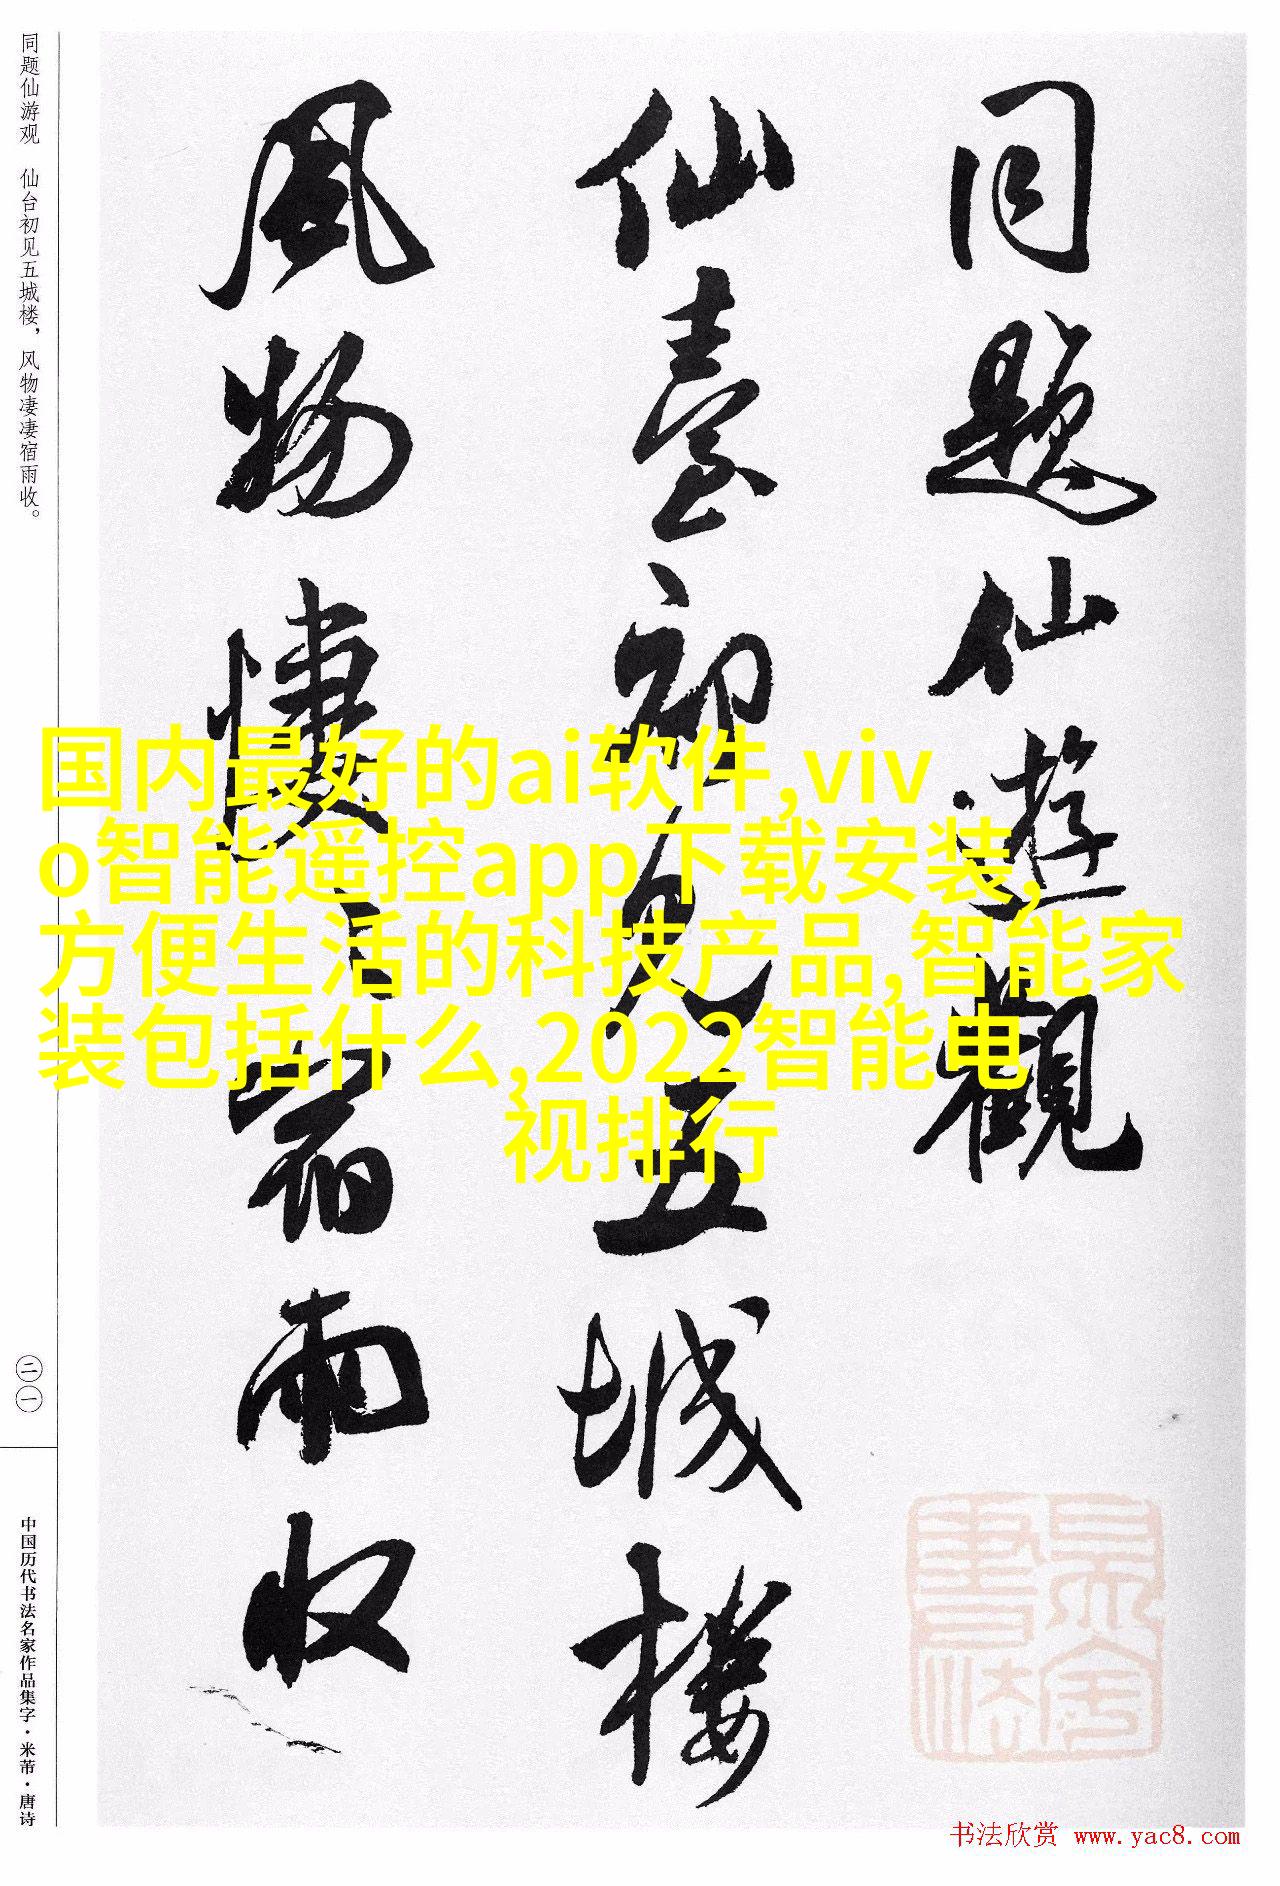 同題仙遊觀
仙臺初見五城樓
風物悽〻宿雨收
国内最好的ai软件,viv
o智能遥控app下载安装,
方便生活的科技产品,智能家
装包括什么,2022智能电
视排行
同题仙游观 仙台初见五城楼，风物凄凄宿雨收。
二一
中国历代书法名家作品集字·米芾·唐诗
书法欣赏 www.yac8.com